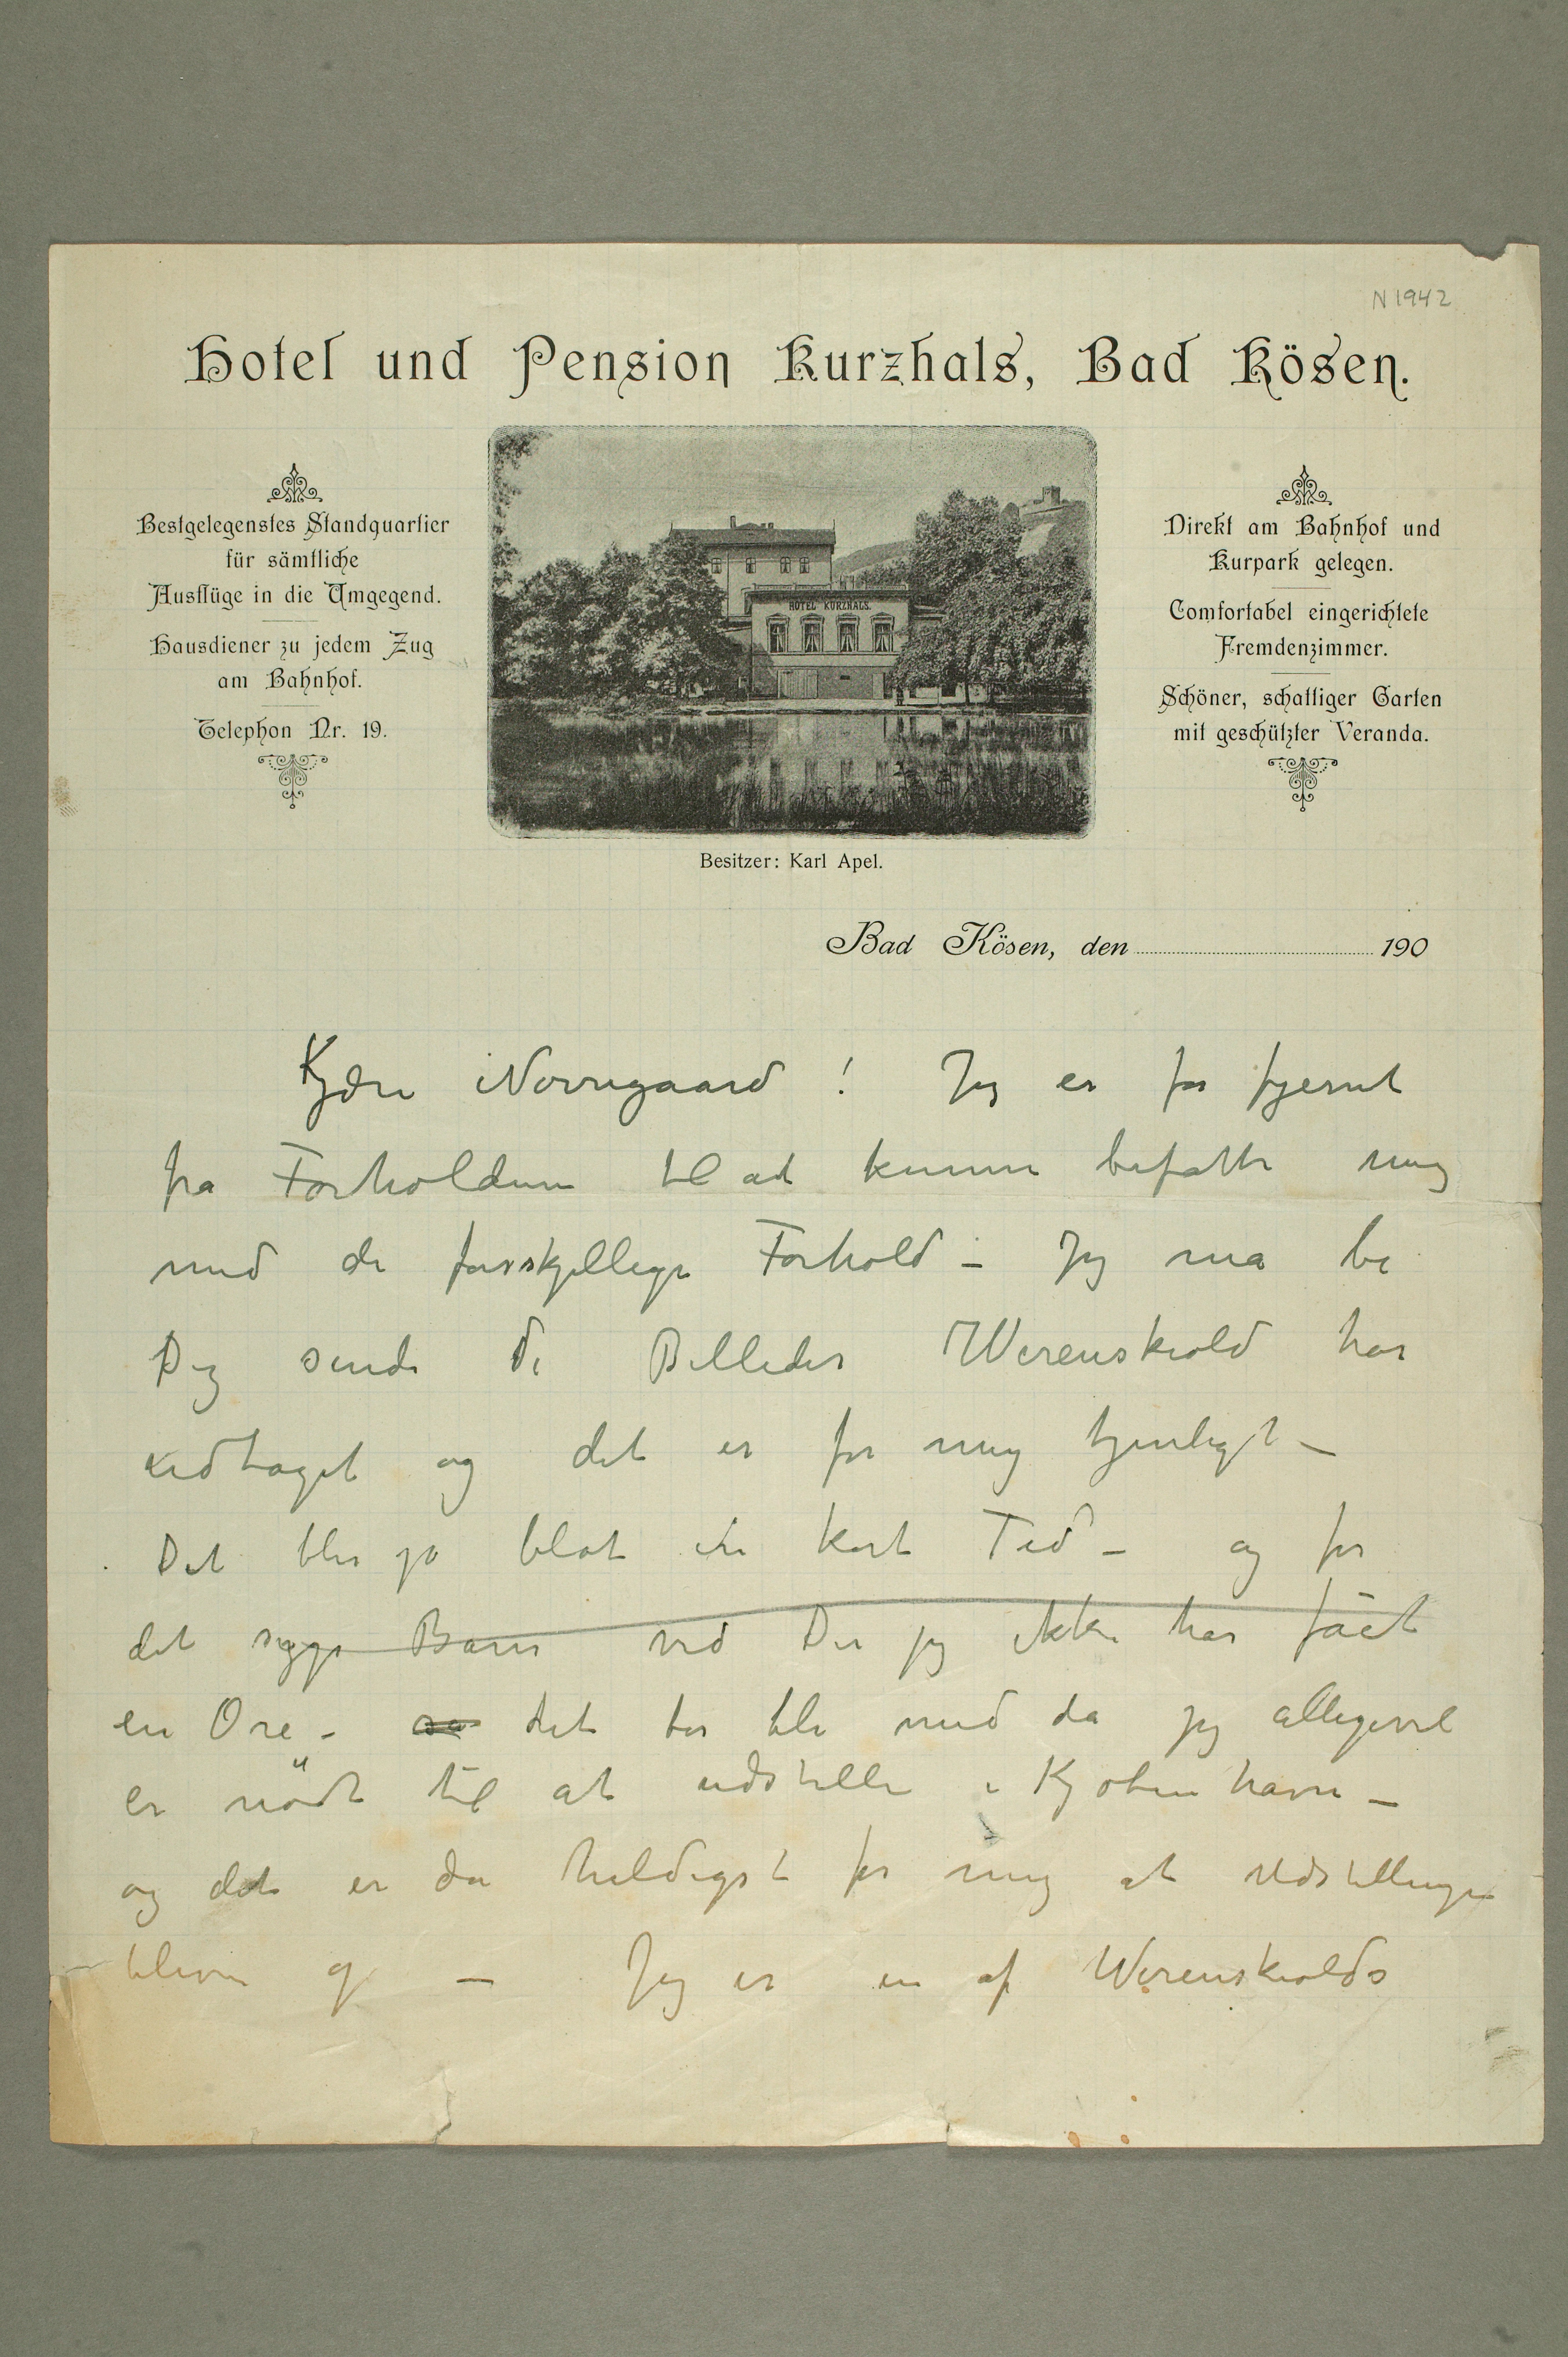 N 1942
Hotel und Pension Kurzhals, Bad Kösen.
Bestgelegenstes Standquartier
für sämtliche
Ausflüge in die Umgegend.
Hausdiener zu jedem Zug
am Bahnhof.
Telephon Nr. 19.
HOTEL KURZHALS.
Direkt am Bahnhof und
Kurpark gelegen.
Comfortabel eingerichtete
Fremdenzimmer.
Schöner, schattiger Garten
mit geschützter Veranda.
Besitzer: Karl Apel.
Bad Kösen, den 190
Kjære Nørregaard! Jeg er for fjernt
fra Forholdene til at kunne befatte mig
med de forskjellige Forhold – Jeg må be
Dig sende de Billeder Werenskiold har
udtaget og det er for mig tjenligt –
Det blir jo blot en kort Tid – og for
det syge Barn ved Du jeg ikke har fåt
en Øre – det får bli med da jeg alligevel
er nödt til at udstille i Kjøbenhavn –
og det er da heldigst for mig at Udstillingen
bliver g – Jeg er en af Werenskiolds